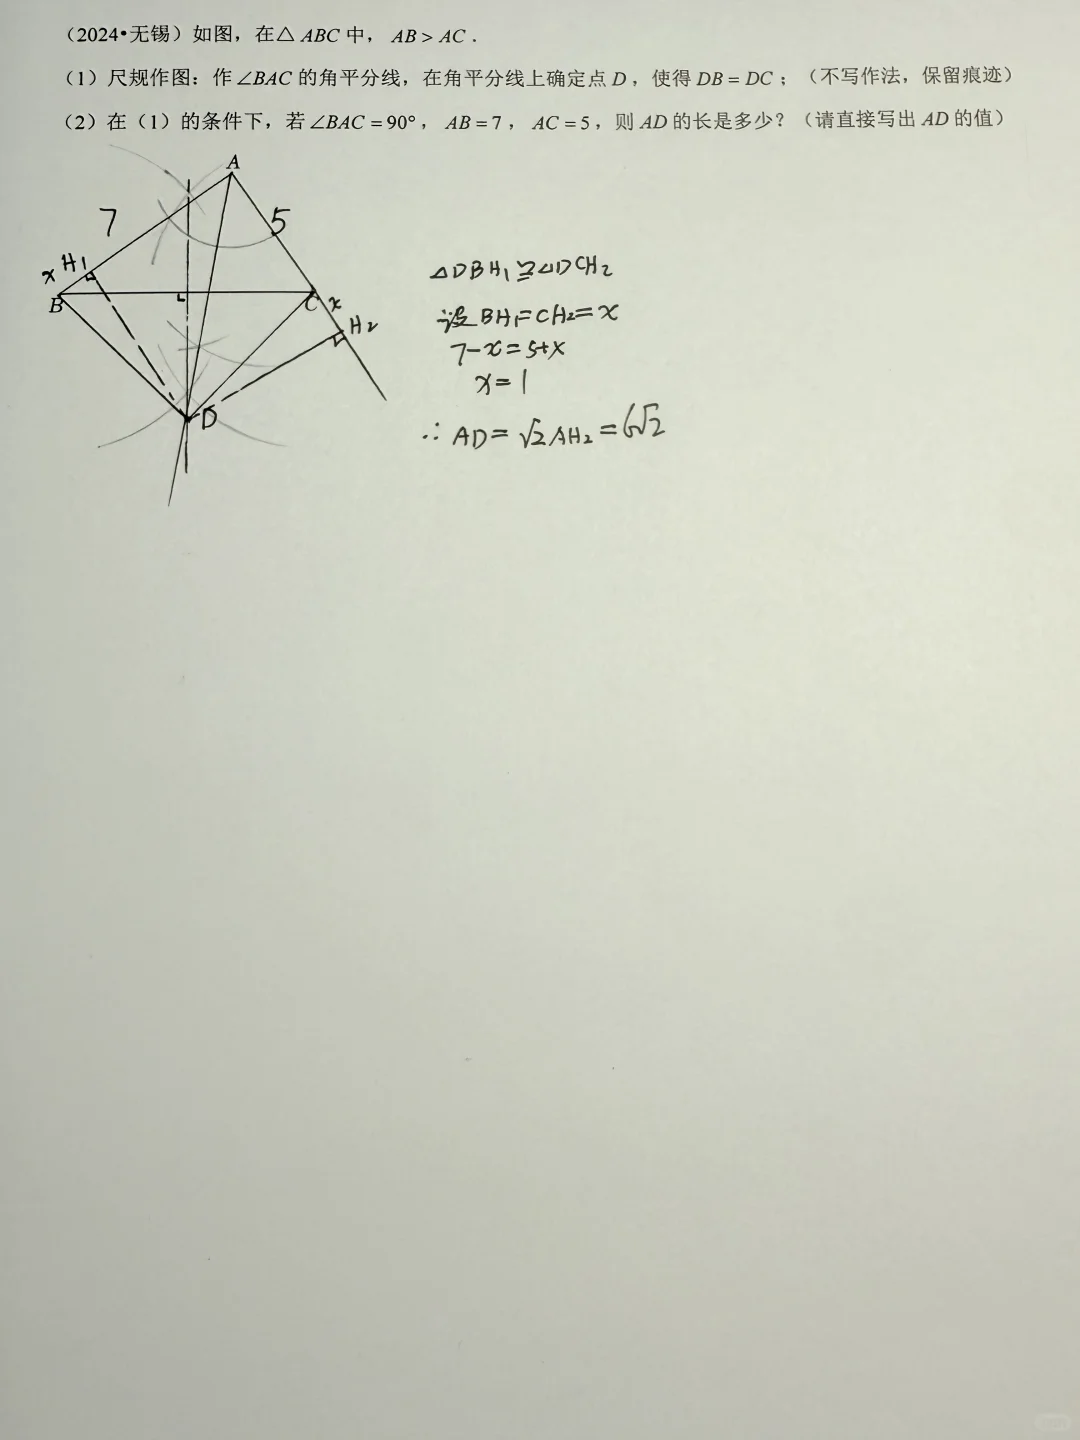 （2024•无锡）如图，在△ ABC 中， AB > AC .
（1）尺规作图：作∠BAC 的角平分线，在角平分线上确定点 D ，使得 DB = DC ；（不写作法，保留痕迹）
（2）在（1）的条件下，若∠BAC = 90° ， AB = 7 ， AC = 5 ，则 AD 的长是多少？（请直接写出 AD 的值）
A
7
5
x H1
B
C x
H2
D
△DBH1≌△DCH2
设 BH1=CH2=x
7-x=5+x
x=1
∴ AD=√2AH2=6√2